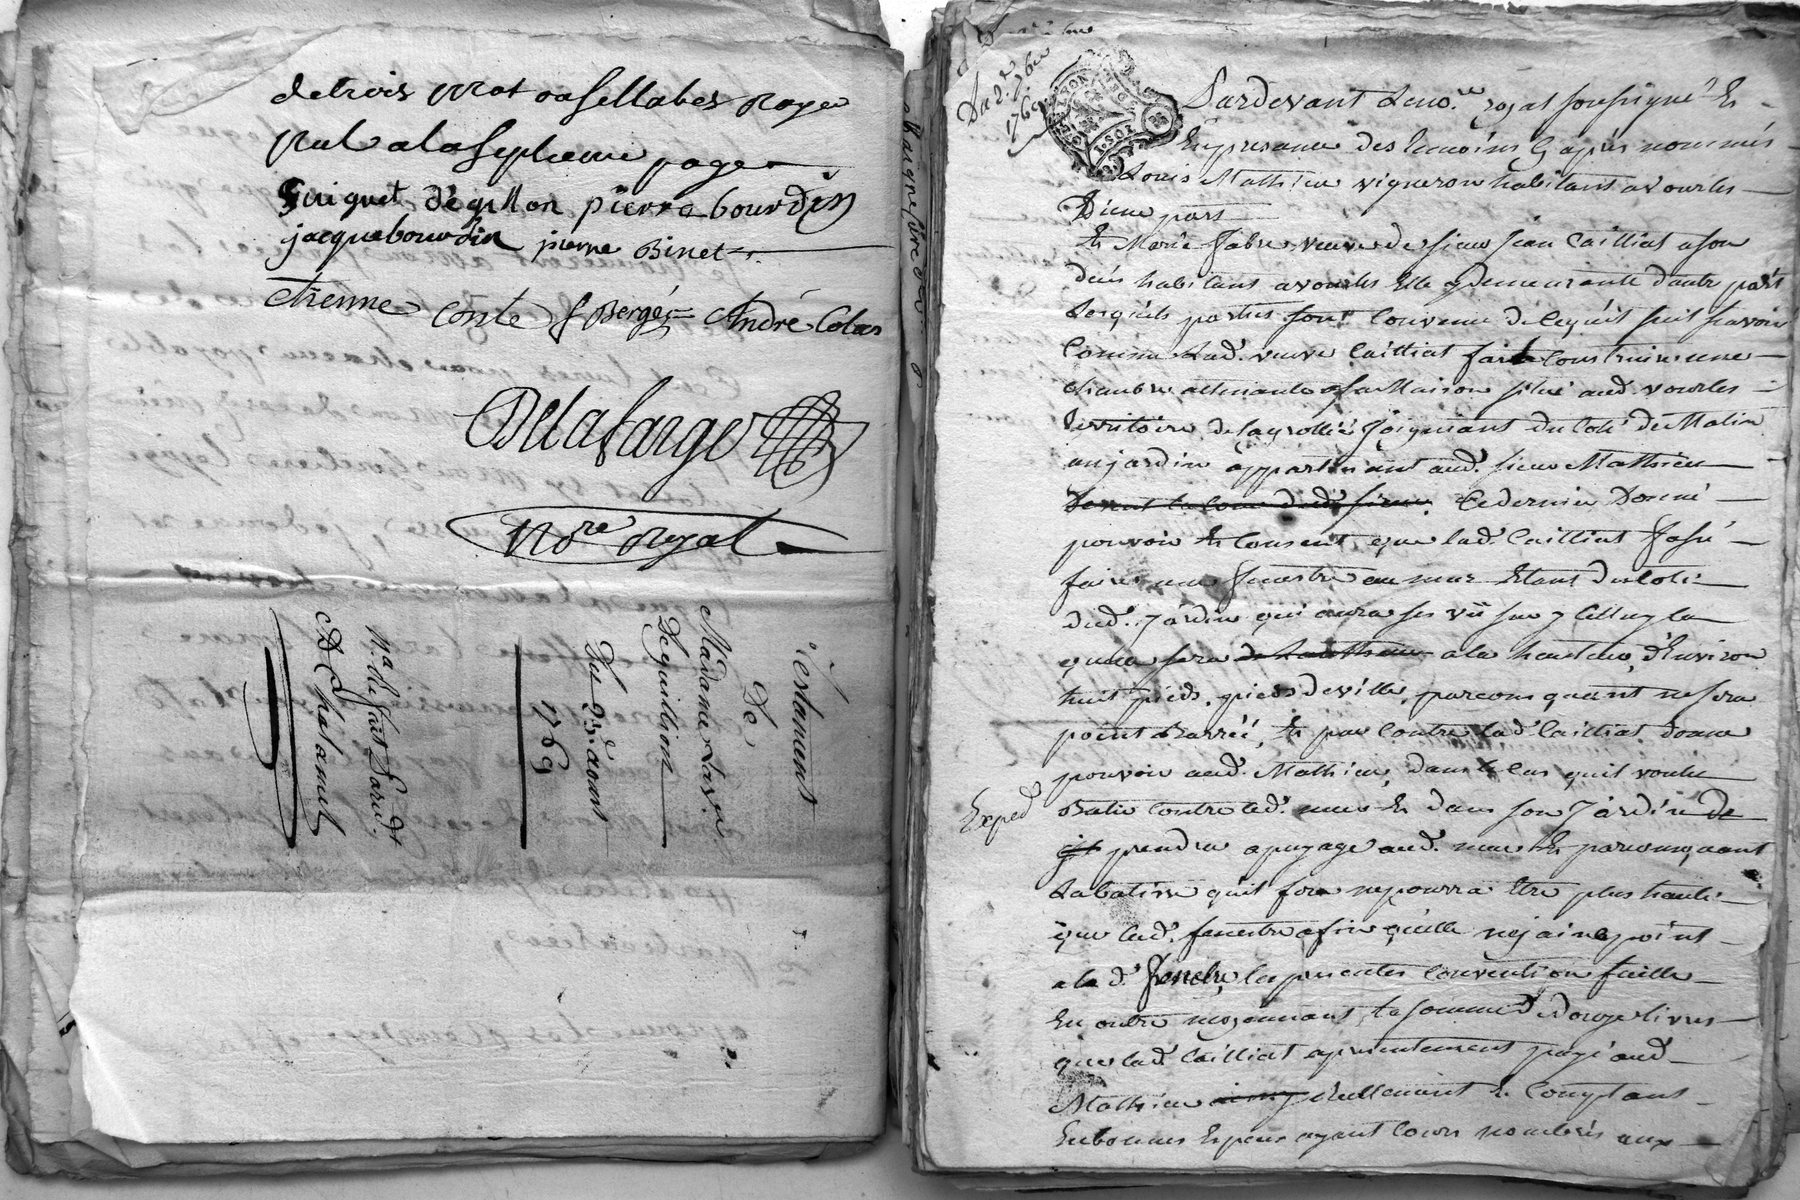 de trois mot ou sillabes Raye
Nul a la septieme page
guiguet Deguillon pierre bourdin
jacque bourdin pierre Binet
etienne Conte f Bergér André Colas
Delafarge
Nore Royal
Testament
De
Madame
Deguillion
Du 23 d'aoust
1769
na. de fait
A Chalamel
Du 2 7bre
1769
LYON
1. SOL
Pardevant Le nore royal soussigné Et
En presance des temoins Cy apres nommés
Louis Mathieu vigneron habitant a vourles
D'une part
Et Marie fabre veuve de sieur jean Cailliat a son
deües habitant a vourles Elle y demeurante d'autre part
Lesquels parties sont Convenu de Ce quit suit scavoir
Comme Lad. veuve Cailliat faire Construire une
chambre attenante a sa Maison situé aud. vourles
territoire de la grollié Joignant du Coté de Matin
au jardin appartenant aud. sieur Mathieu
Devant la Cour dud. sieur, Ce dernier Donne
pouvoir Et Consent que lad. Cailliat fasse
faire une fenestre au mur Etant du Coté
dud. Jardin qui aura ses vii sur yCelluy la
quelle sera a la hauteur, d'Environ
huit pieds, pieds de ville, parconsquent ne sera
point Barréé, Et par Contre lad. Cailliat donne
pouvoir aud. Mathieu, dans le Cas quit voulu
Batir Contre led. mur Et dans son Jardin de
prendre apuyage aud. mur Et parconsquant
La batisse quit fera ne pourra Etre plus haute
que lad. fenestre afin qu'elle ne jaine point
a la d. fenetre, les presentes Convention faitte
En outre moyennant, la somme de douze livres
que lad. Cailliat a presentement payé aud.
Mathieu reellement Et Comptant
En bonnes Especes ayant Cours nombrés aux
Exped